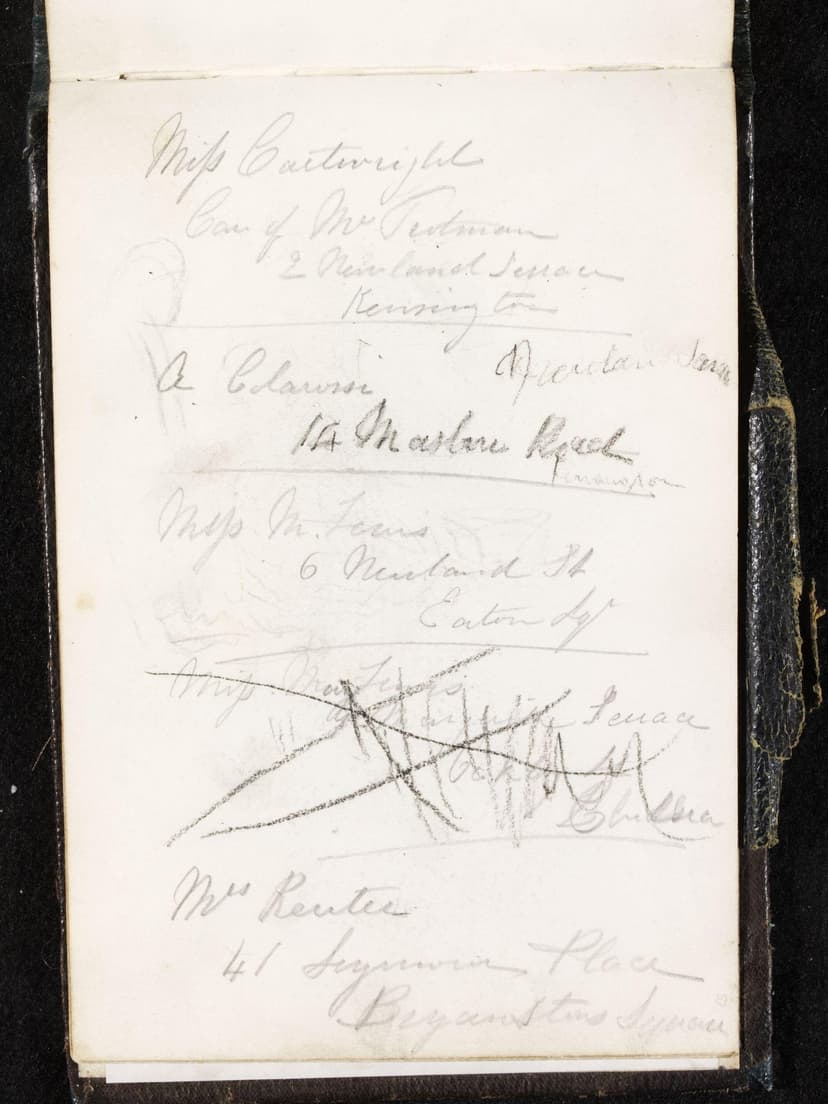 Miss Cartwright
Care of Mr Trotman
2 Newland Terrace
Kensington
A Colarossi
14 Marlboro Road
Kensington
Miss M. Lewis
6 Newland St
Eaton Sqr
Miss M Lewis
Terrace
St
Chelsea
Mrs Reuter
41 Seymour Place
Bryanston Square